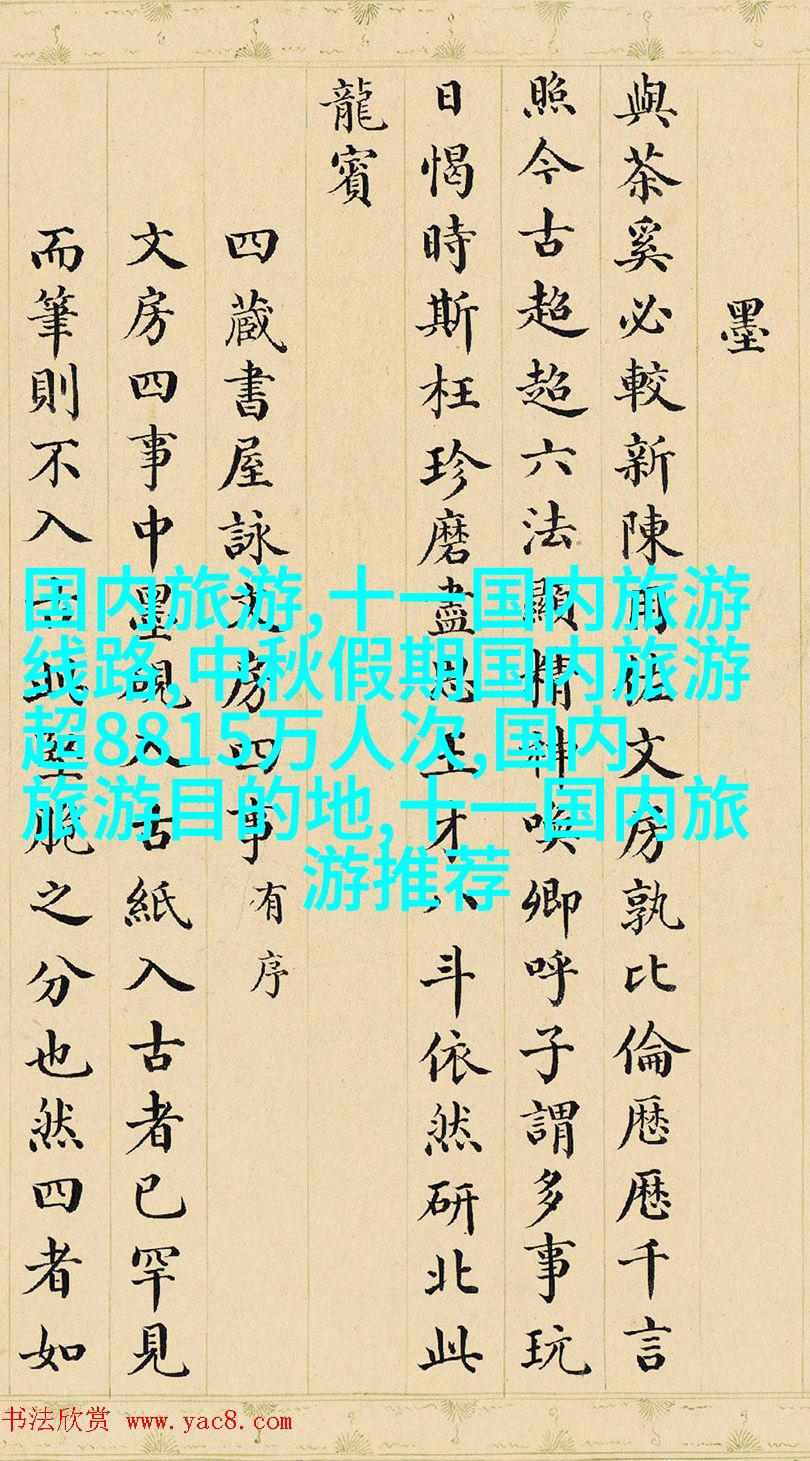 墨
與茶奚必較新陳用在文房孰比倫歷歷千言
照今古超超六法顯精神喚卿呼子謂多事玩
日愒時斯枉珍磨盡思王才八斗依然研北此
龍賓
四蔵書屋詠文房四事有序
文房四事中墨硯入古紙入古者已罕見
而筆則不入古此堅脆之分也然四者如
国内旅游,十一国内旅游
线路,中秋假期国内旅游
超8815万人次,国内
旅游目的地,十一国内旅
游推荐
书法欣赏 www.yac8.com